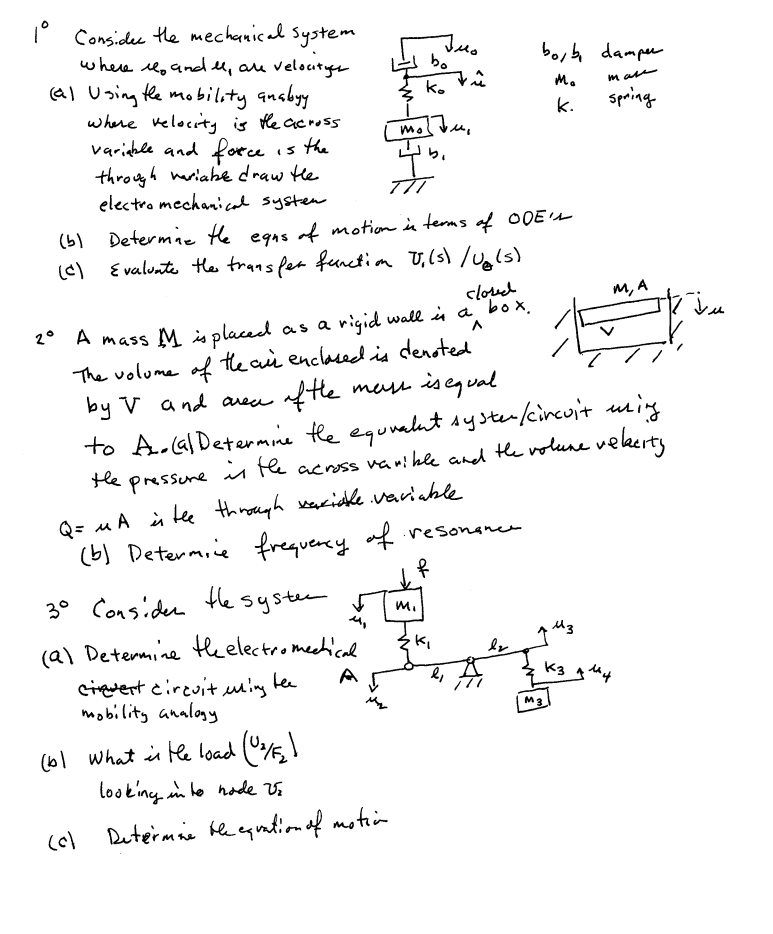 1° Consider the mechanical system
where u₀ and u₁ are velocitys
(a) Using the mobility analogy
where velocity is the across
variable and force is the
through variable draw the
electromechanical system
u₀
b₀
û
k₀
m₀ u₁
b₁
b₀, b₁ damper
m₀ mass
k. spring
(b) Determine the eqns of motion in terms of ODE's
(c) Evaluate the transfer function U₁(s) / U₀(s)
2° A mass M is placed as a rigid wall in a closed box.
The volume of the air enclosed is denoted
by V and area of the mass is equal
to A. (a) Determine the equivalent system/circuit using
the pressure is the across varible and the volume velocity
Q = uA is the through variable
(b) Determine frequency of resonance
M, A
u
V
3° Consider the system
(a) Determine the electromechical
circuit using the
mobility analogy
(b) What is the load (U₂/F₂)
looking into node U₂
(c) Determine the equation of motion
f
u₁
m₁
k₁
A
u₂
l₁
l₂
u₃
k₃ u₄
m₃